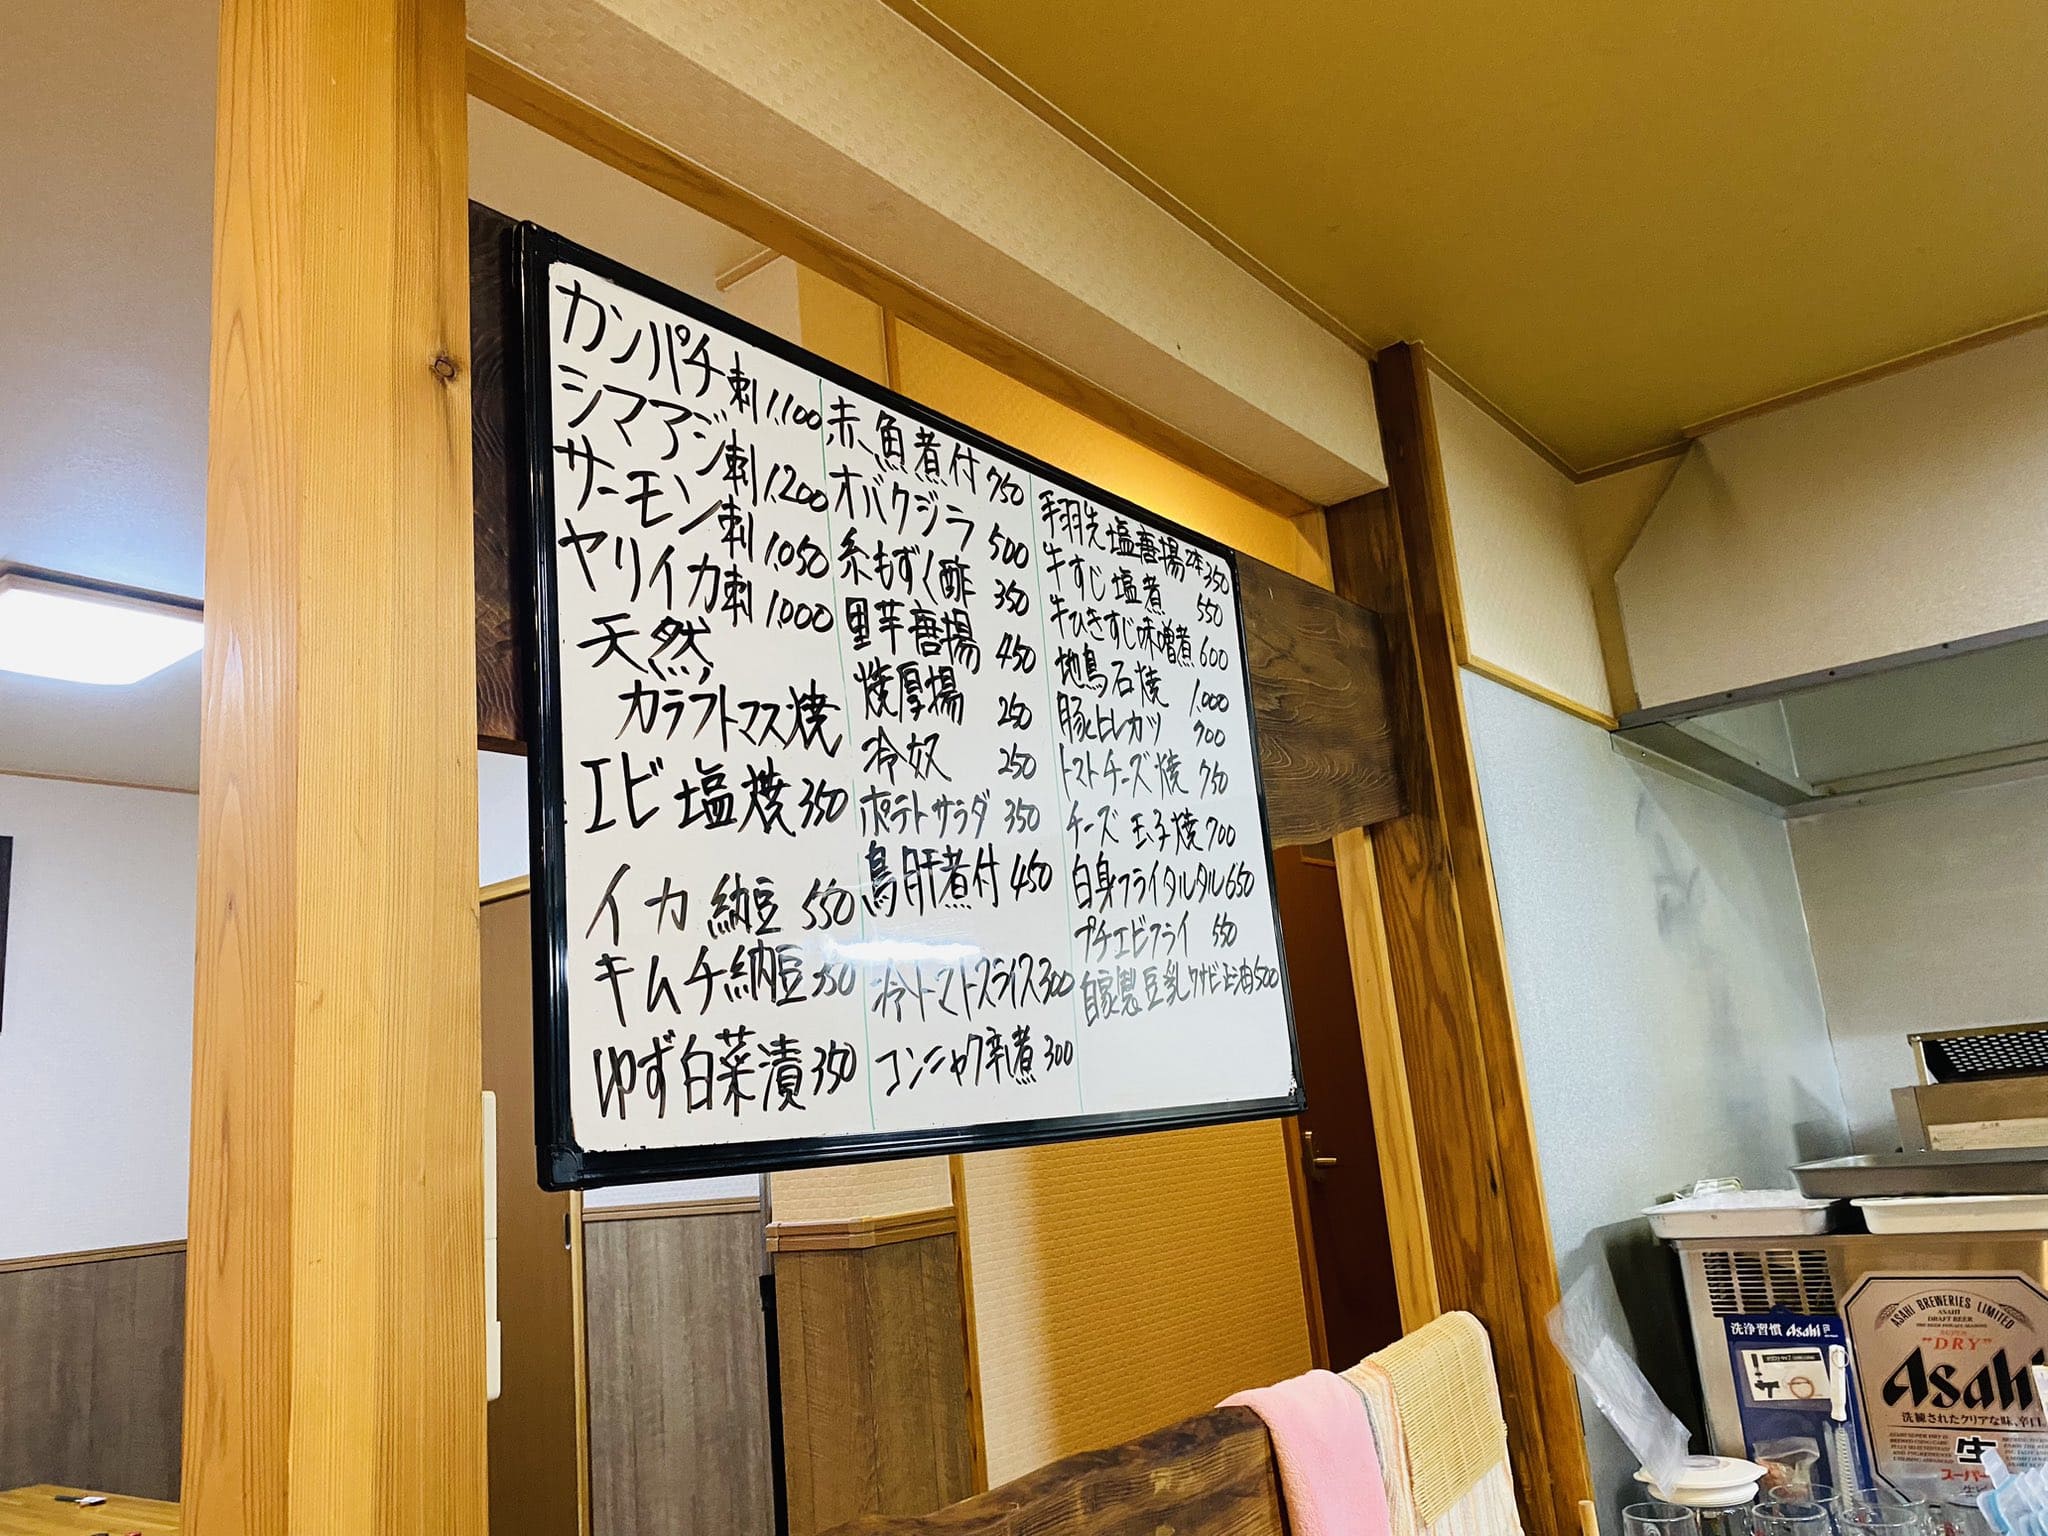 カンパチ刺 1.100
シマアジ刺 1.200
サーモン刺 1.050
ヤリイカ刺 1.000
天然
カラフトマス焼
エビ塩焼 350
イカ納豆 550
キムチ納豆 350
ゆず白菜漬 350
赤魚煮付 750
オバクジラ 500
糸もずく酢 350
里芋唐揚 450
焼厚揚 250
冷奴 250
ポテトサラダ 350
鳥肝煮付 450
冷トマトスライス 300
コンニャク辛煮 300
手羽先塩唐揚2本 350
牛すじ塩煮 550
牛ひきすじ味噌煮 600
地鳥石焼 1.000
豚ヒレカツ 900
トマトチーズ焼 750
チーズ玉子焼 700
白身フライタルタル 650
プチエビフライ 550
自家製豆乳ワサビ正油 500
洗浄習慣 Asahi
ASAHI BREWERIES LIMITED
ASAHI
DRAFT BEER
"DRY"
Asahi
洗練されたクリアな味、辛口。
生
スーパー